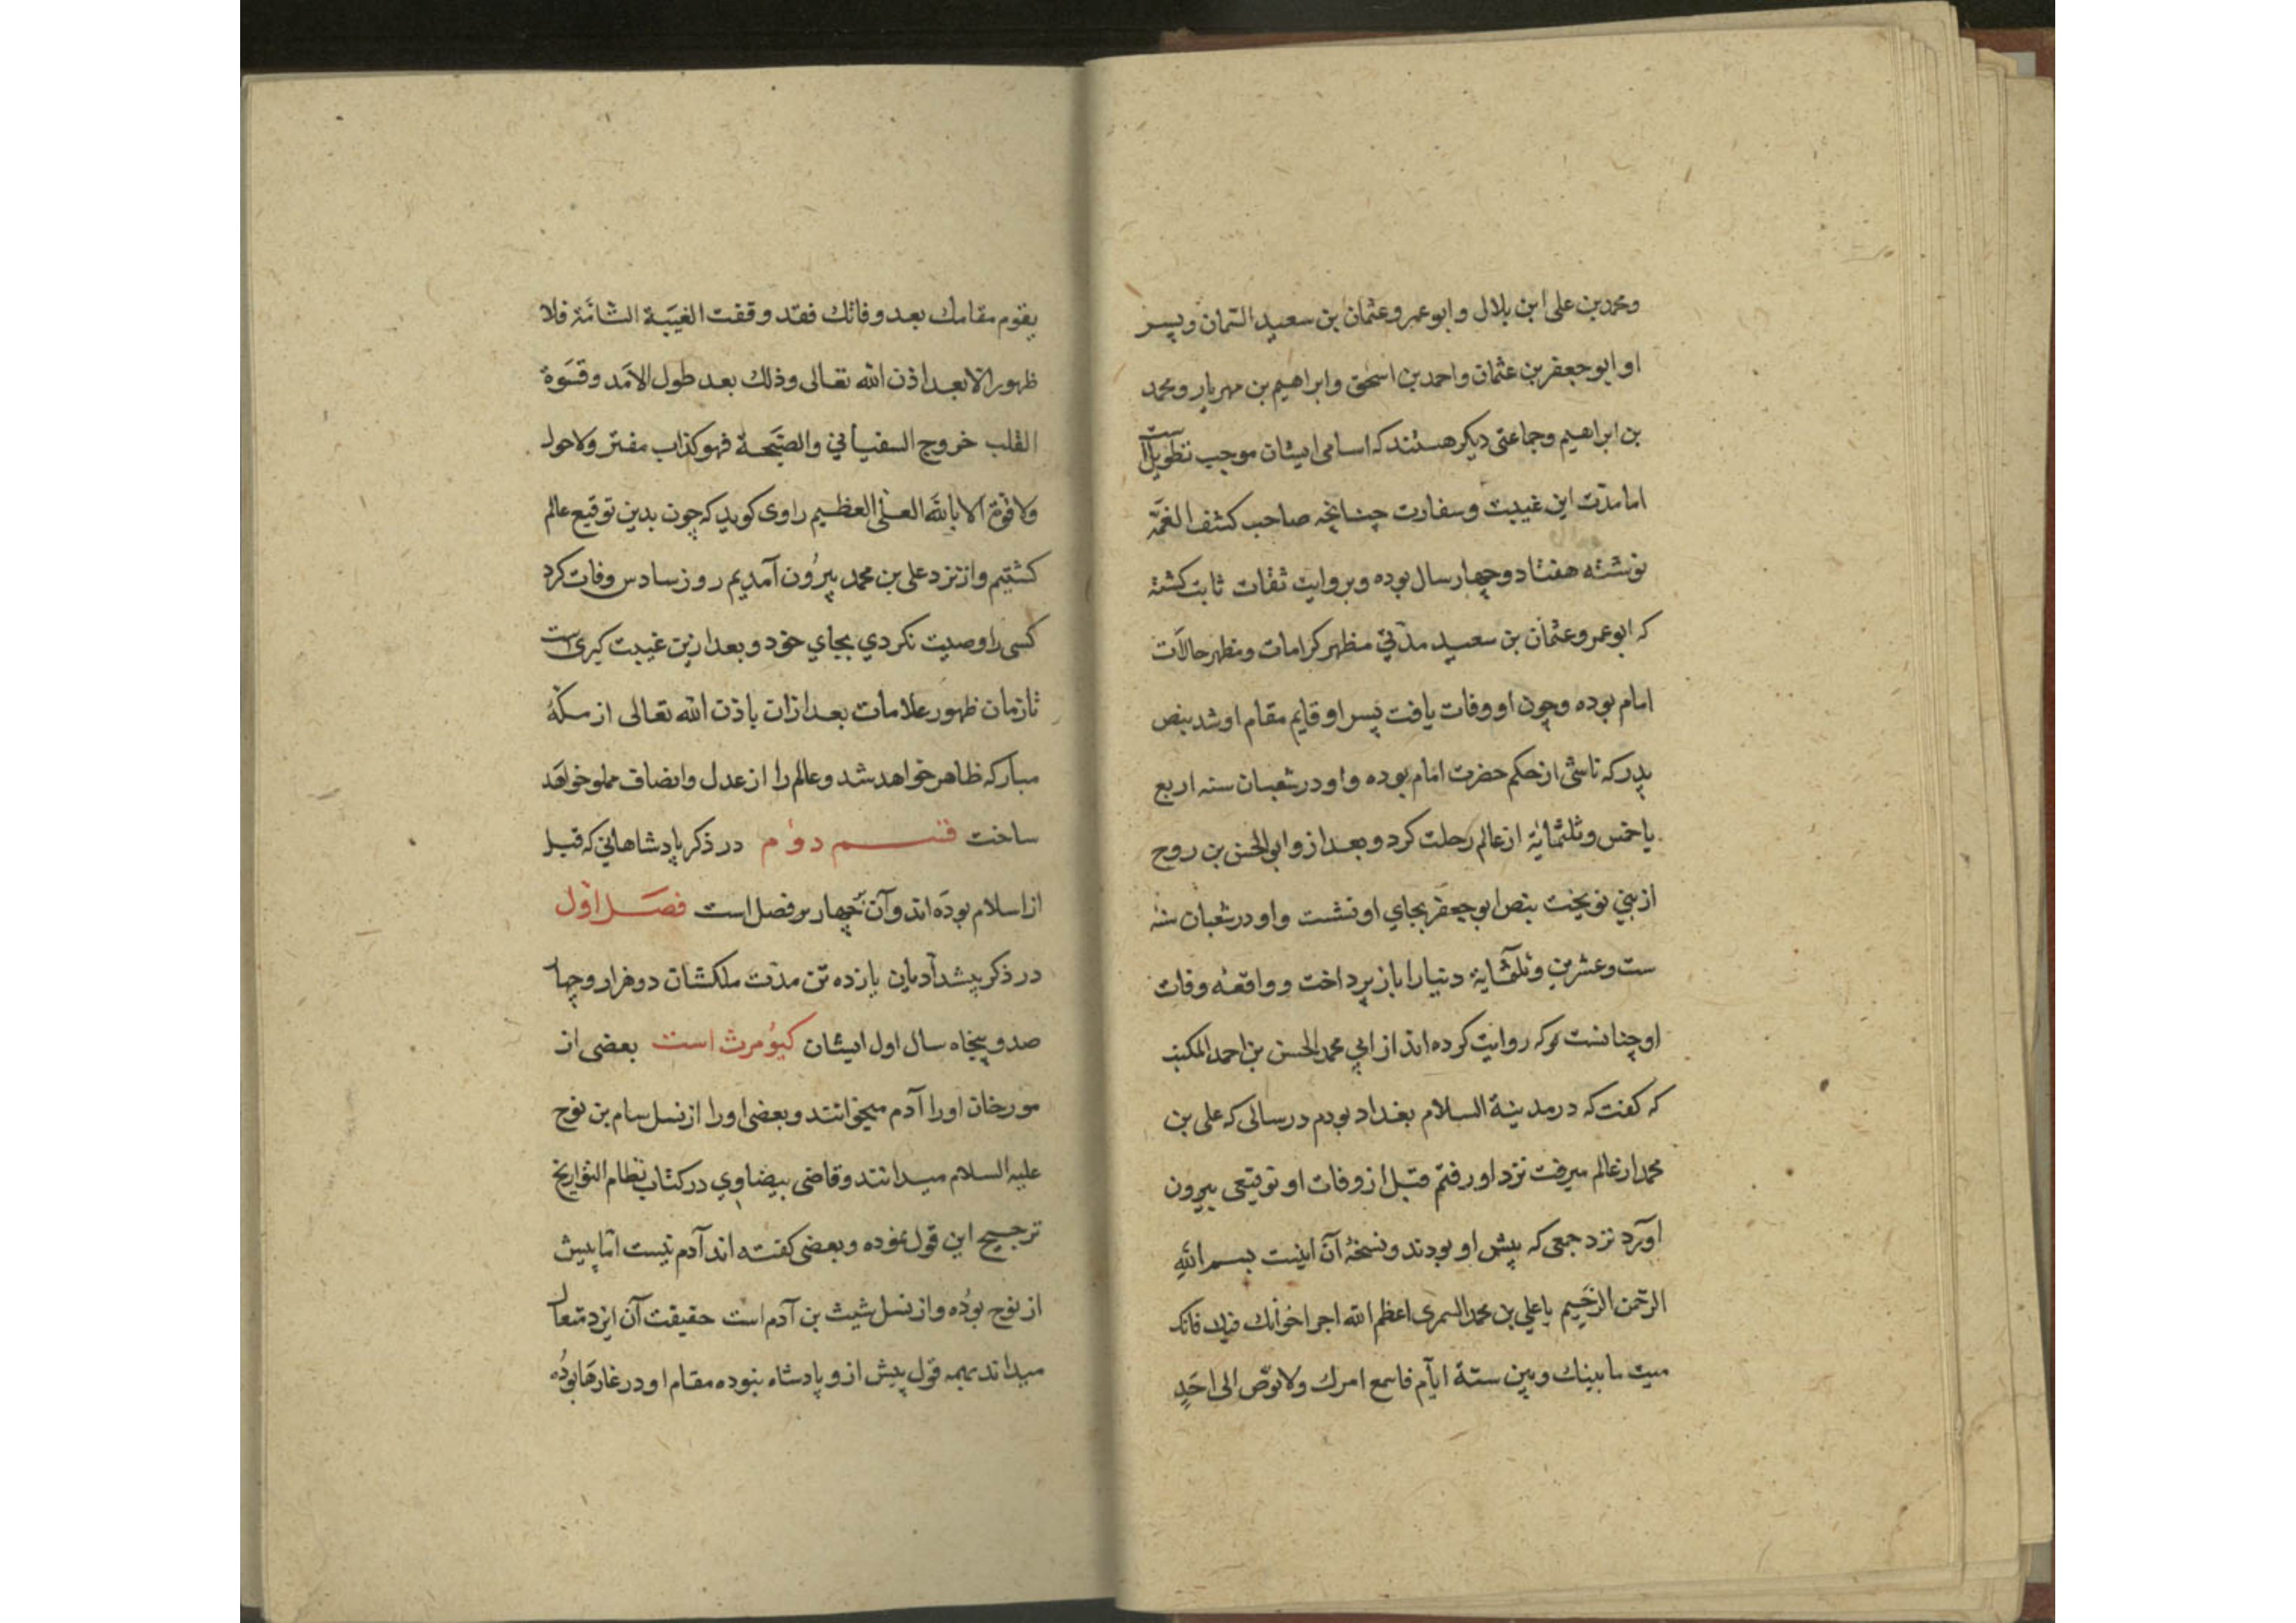 ومحمد بن علی ابن بلال و ابو عمرو عثمان بن سعید السمان و پسر
او ابو جعفر بن عثمان و احمد بن اسحق و ابراهیم بن مهریار و محمد
بن ابراهیم و جماعتی دیکر هستند که اسامی ایشان موجب تطویل است
اما مدّت این غیبت و سفارت چنانچه صاحب کشف الغمّه
نوشته هفتاد و چهار سال بوده و بروایت ثقات ثابت کشته
که ابو عمرو عثمان بن سعید مدتی مظهر کرامات و مظهر حالات
امام بوده و چون او وفات یافت پسر او قایم مقام او شد بنص
پدر که ناشی از حکم حضرت امام بوده و او در شعبان سنه اربع
یا خمس و ثلثمایة از عالم رحلت کرد و بعد از و ابی الحسن بن روح
از بنی نوبخت بنص ابو جعفر بجای او نشست و او در شعبان سنهٔ
ست و عشرین و ثلثمایة دنیا را باز پرداخت و واقعهٔ وفات
او چنانست که روایت کرده اند از ابی محمد الحسن بن احمد المکتب
که کفت که در مدینة السلام بغداد بودم در سالی که علی بن
محمد از عالم میرفت نزد او رفتم قبل از وفات او توقیعی بیرون
آورد نزد جمعی که پیش او بودند و نسخهٔ آن اینست بسم الله
الرّحمن الرّحیم یا علی بن محمد السمری اعظم الله اجر اخوانک فیک فانک
میت ما بینك و بین ستة ایّام فاسمع امرك و لا توصّ الی احدٍ
یقوم مقامك بعد وفاتك فقد وقفت الغیبة التامّة فلا
ظهور الا بعد اذن الله تعالی و ذلك بعد طول الامد و قسوة
القلب خروج السفیانی و الصّیحة فهو کذاب مفتر و لا حول
و لا قوّة الا بالله العلی العظیم راوی کوید که چون بدین توقیع عالم
کشتیم و از نزد علی بن محمد بیرون آمدیم روز سادس وفات کرد
کسی را وصیت نکردی بجای خود و بعد ازین غیبت کبری است
تا زمان ظهور علامات بعد ازان باذن الله تعالی از مکهٔ
مبارکه ظاهر خواهد شد و عالم را از عدل و انصاف مملو خواهد
ساخت قسم دوم در ذکر پادشاهانی که قبل
از اسلام بوده اند و آن بر چهار فصل است فصل اوّل
در ذکر پیشدادیان یازده تن مدّت ملکشان دو هزار و چهار
صد و پنجاه سال اول ایشان کیومرث است بعضی از
مورخان او را آدم میخوانند و بعضی او را از نسل سام بن نوح
علیه السلام میدانند و قاضی بیضاوی در کتاب نظام التواریخ
ترجیح این قول نموده و بعضی کفته اند آدم نیست امّا پیش
از نوح بوده و از نسل شیث بن آدم است حقیقت آن ایزد متعال
میداند بهمه قول پیش از و پادشاه نبوده مقام او در غارها بوده